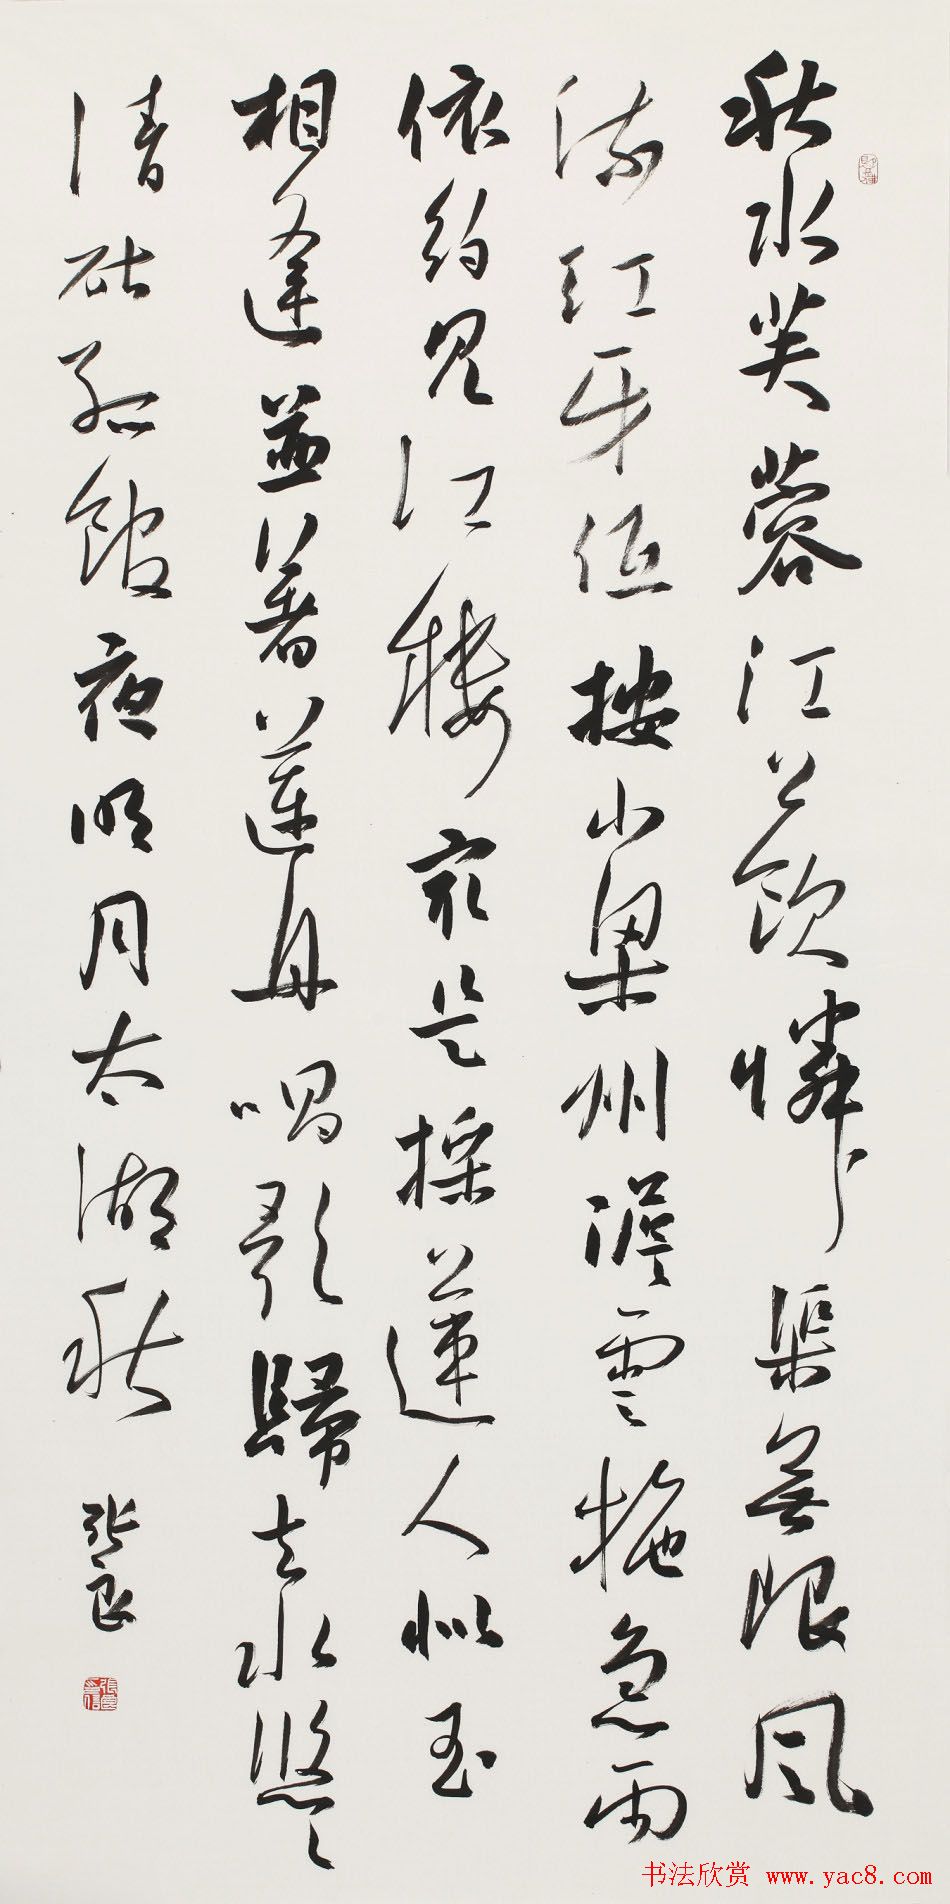 秋水芙蓉江上飲憐渠無限風
流紅牙低按小梁州澹雲拖急雨
依約見江樓冣是採蓮人似玉
相逢並著蓮舟唱歌歸去水悠々
清砧孤館夜明月太湖秋 張良
书法欣赏 www.yac8.com